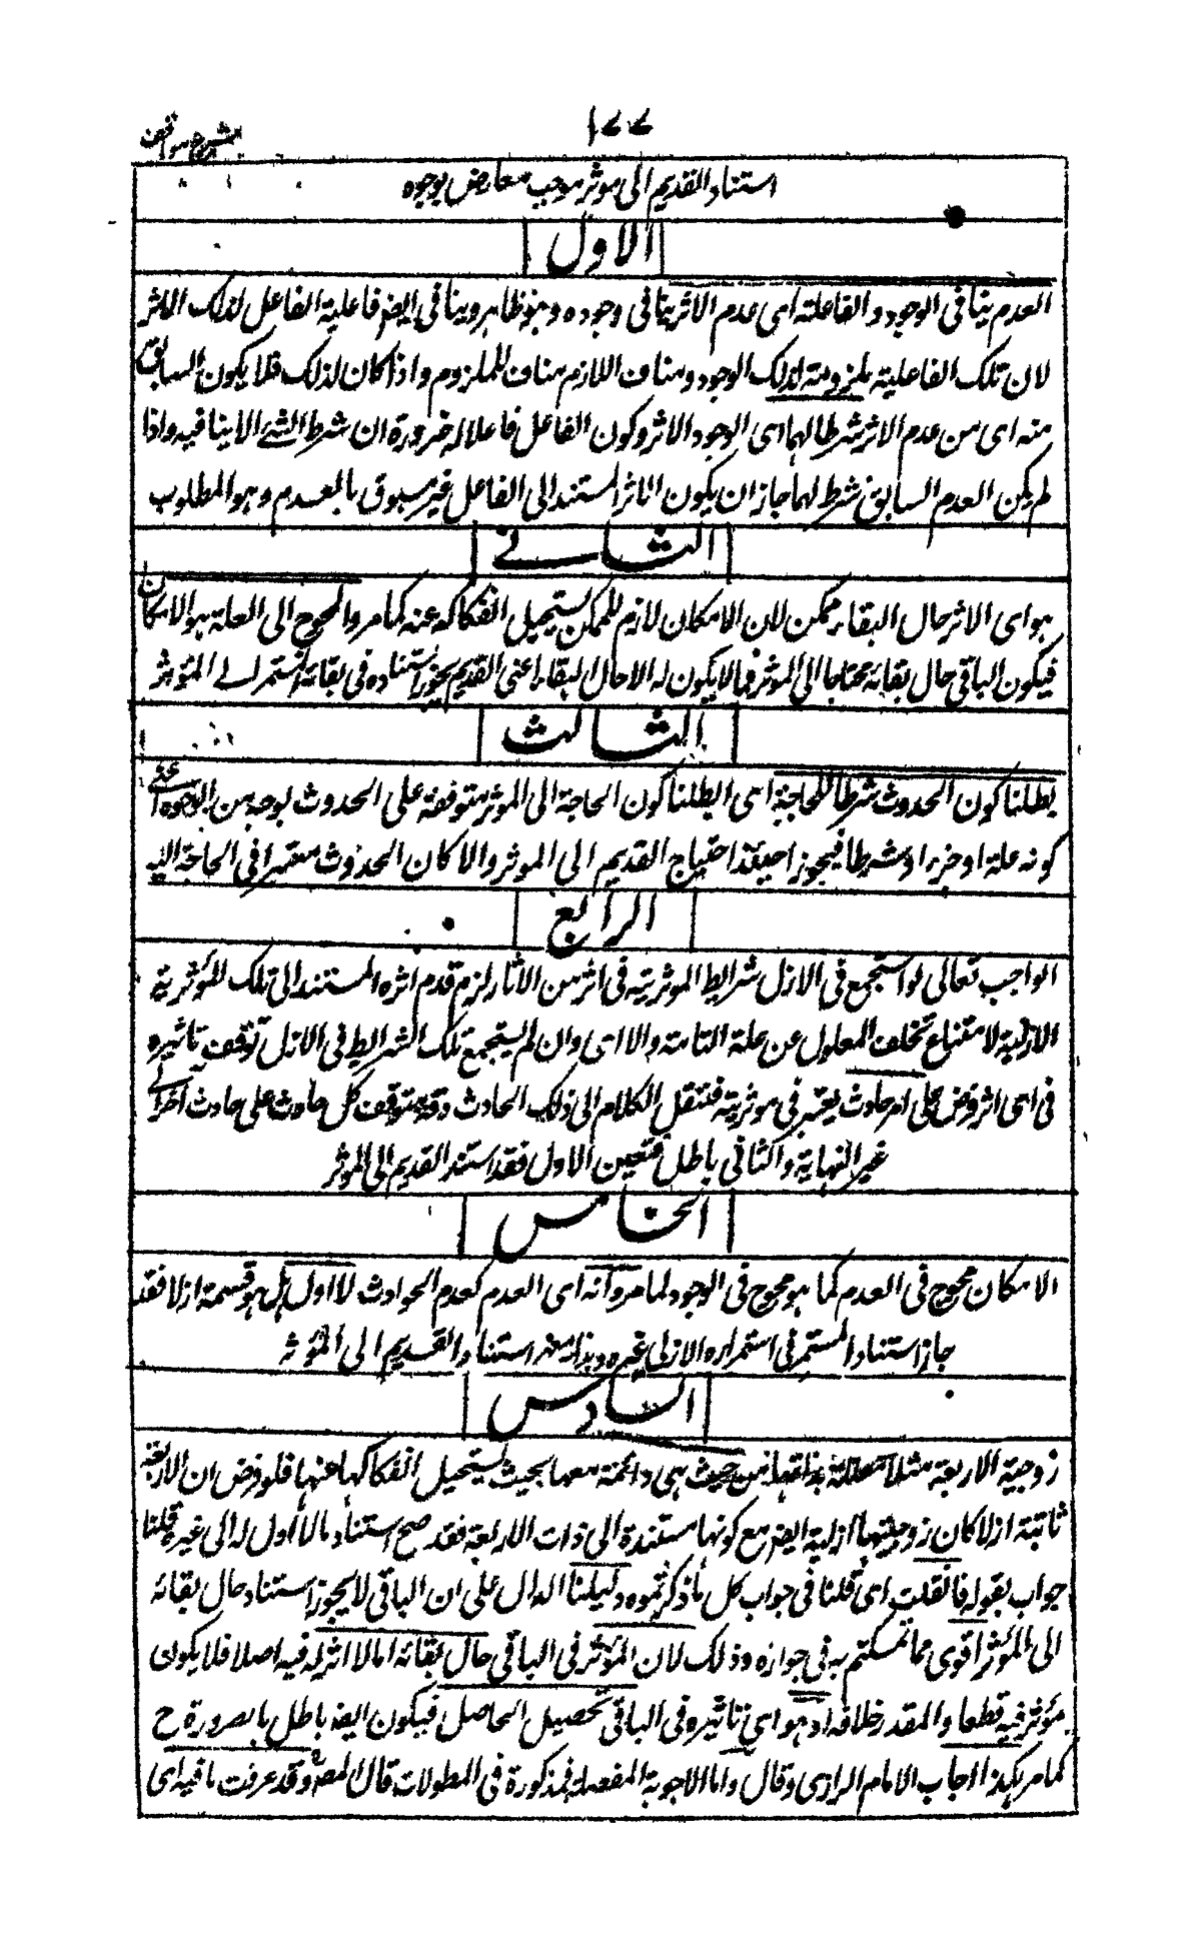 ۱۷۷
شرح مواقف
استناد القديم الى موثر موجب معارض بوجوه
الاول
العدم ينافى الوجود والفاعلية اى عدم الاثر ينافى وجوده وهو ظاهر وينافى ايضا فاعلية الفاعل لذلك الاثر
لان تلك الفاعلية ملزومة لذلك الوجود ومناف اللازم مناف للملزوم واذا كان لذلك فلا يكون السابق
منه اى من عدم الاثر شرطا لهما اى لوجود الاثر وكون الفاعل فاعلا له ضرورة ان شرط الشئ لا ينافيه واذا
لم يكن العدم السابق شرط لهما جاز ان يكون الاثر المستند الى الفاعل غير مسبوق بالعدم وهو المطلوب
الثانے
هو اى الاثر حال البقاء ممكن لان الامكان لازم للممكن يستحيل انفكاكه عنه كما مر والمحوج الى العلة هو الامكان
فيكون الباقى حال بقائه محتاجا الى المؤثر فما لا يكون له الا حال البقاء اعنى القديم يجوز استناده فى بقائه المستمر الے المؤثر
الثالث
بطلنا كون الحدوث شرطا للحاجة اى ابطلنا كون الحاجة الى الموثر متوقفة على الحدوث بوجه من الوجوه اعنے
كونه علة او جزء او شرطا فيجوز حينئذ احتياج القديم الى الموثر والا كان الحدوث معتبرا فى الحاجة اليه
الرابع
الواجب تعالى لو استجمع فى الازل شرايط الموثرية فى اثر من الاثار لزم قدم اثره المستند الى تلك المؤثرية
الازلية لامتناع تخلف المعلول عن علة التامة والا اى وان لم يستجمع تلك الشرايط فى الازل توقف تاثيره
فى اى اثر فرض على امر حادث يعتبر فى موثريته فننتقل الكلام الى ذلك الحادث وقد يتوقف كل حادث على حادث آخر الے
غير النهاية والثانى باطل فتعين الاول فقد استند القديم الى الموثر
الخامس
الامكان محوج فى العدم كما هو محوج فى الوجود لما مر وانه اى العدم كعدم الحوادث لا اول له بل هو قسمة ازلا فقد
جاز استناد المستمر فى استمراره الازلى غيره وهذا معنى استناد القديم الى المؤثر
السادس
زوجية الاربعة مثلا معللة بذاتها من حيث هى دائمة معها بحيث يستحيل انفكاكها عنها فلو فرض ان الاربعة
ثابتة ازلا كان زوجيتها ازلية ايضا مع كونها مستندة الى ذات الاربعة فقد صح استناد ما لا اول له الى غيره قلنا
جواب بقوله فان قلت اى قلنا فى جواب كل ما ذكرتموه دليلنا الدال على ان الباقى لا يجوز استناد حال بقائه
الى المؤثر اقوى مما تمسكتم به فى جوازه وذلك لان المؤثر فى الباقى حال بقائه اما لا اثر له فيه اصلا فلا يكون
مؤثر فيه قطعا والمقدر خلافه او هو اى تاثيره فى الباقى تحصيل الحاصل فيكون ايضا باطل بالضرورة ح
كما مر هكذا اجاب الامام الرازى وقال واما الاجوبة المفصلة فمذكورة فى المطولات قال المصـ وقد عرفت ما فيه اى